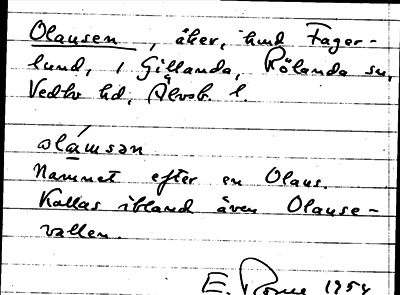 Olausen, åker, hmd Fager-
lund, i Gillanda, Rölanda sn,
Vedbo hd, Älvsb. l.
olámsən
Namnet efter en Olaus.
Kallas ibland även Olause-
vallen.
E. 1954